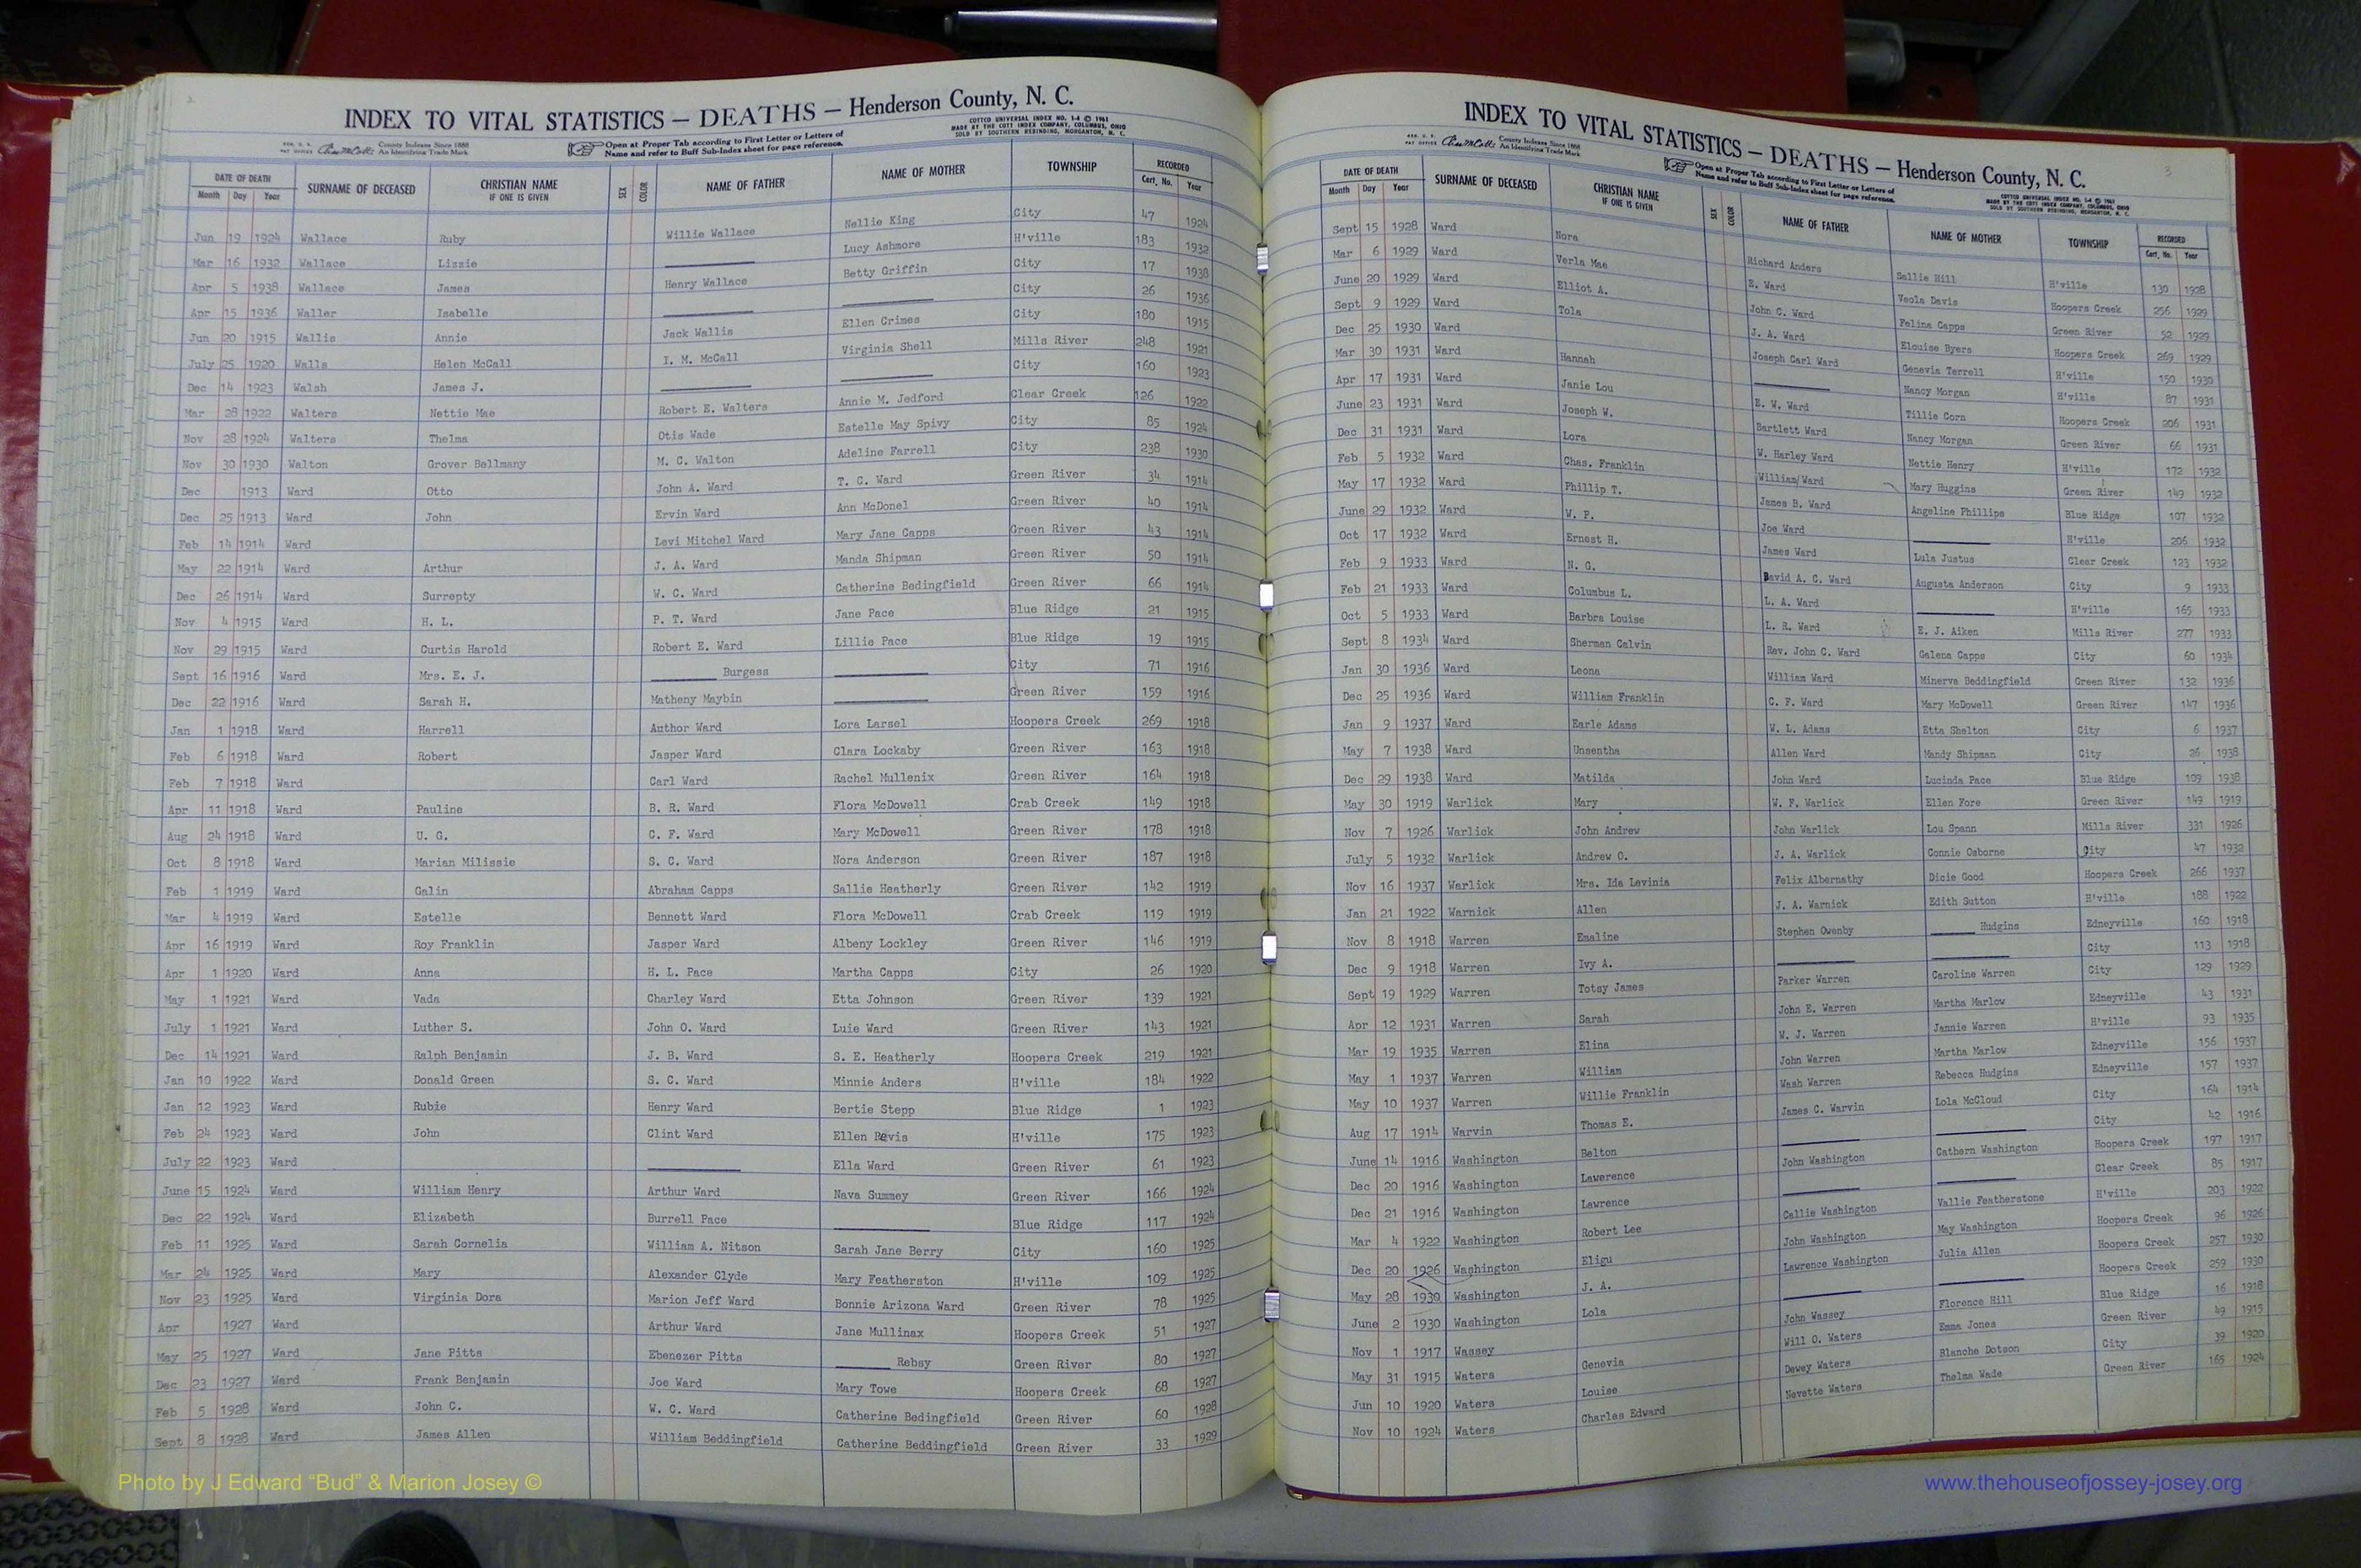 INDEX TO VITAL STATISTICS — DEATHS — Henderson County, N. C.
COTTCO UNIVERSAL INDEX NO. 1-4 © 1961
MADE BY THE COTT INDEX COMPANY, COLUMBUS, OHIO
SOLD BY SOUTHERN REBINDING, MORGANTON, N. C.
REG. U. S. PAT OFFICE County Indexes Since 1888 An Identifying Trade Mark
Open at Proper Tab according to First Letter or Letters of
Name and refer to Buff Sub-Index sheet for page reference.
DATE OF DEATH SURNAME OF DECEASED CHRISTIAN NAME IF ONE IS GIVEN SEX COLOR NAME OF FATHER NAME OF MOTHER TOWNSHIP RECORDED
Month Day Year Cert. No. Year
Jun 19 1924 Wallace Ruby Willie Wallace Nellie King City 47 1924
Mar 16 1932 Wallace Lizzie Lucy Ashmore H'ville 183 1932
Apr 5 1938 Wallace James Henry Wallace Betty Griffin City 17 1938
Apr 15 1936 Waller Isabelle City 26 1936
Jun 20 1915 Wallis Annie Jack Wallis Ellen Grimes City 180 1915
July 25 1920 Walls Helen McCall I. M. McCall Virginia Shell Mills River 248 1921
Dec 14 1923 Walsh James J. City 160 1923
Mar 28 1922 Walters Nettie Mae Robert E. Walters Annie M. Jedford Clear Creek 126 1922
Nov 28 1924 Walters Thelma Otis Wade Estelle May Spivy City 85 1924
Nov 30 1930 Walton Grover Bellmany M. C. Walton Adeline Farrell City 238 1930
Dec 1913 Ward Otto John A. Ward T. C. Ward Green River 34 1914
Dec 25 1913 Ward John Ervin Ward Ann McDonel Green River 40 1914
Feb 14 1914 Ward Levi Mitchel Ward Mary Jane Capps Green River 43 1914
May 22 1914 Ward Arthur J. A. Ward Manda Shipman Green River 50 1914
Dec 26 1914 Ward Surrepty W. C. Ward Catherine Bedingfield Green River 66 1914
Nov 4 1915 Ward H. L. P. T. Ward Jane Pace Blue Ridge 21 1915
Nov 29 1915 Ward Curtis Harold Robert E. Ward Lillie Pace Blue Ridge 19 1915
Sept 16 1916 Ward Mrs. E. J. Burgess City 71 1916
Dec 22 1916 Ward Sarah H. Matheny Maybin Green River 159 1916
Jan 1 1918 Ward Harrell Author Ward Lora Larsel Hoopers Creek 269 1918
Feb 6 1918 Ward Robert Jasper Ward Clara Lockaby Green River 163 1918
Feb 7 1918 Ward Carl Ward Rachel Mullenix Green River 164 1918
Apr 11 1918 Ward Pauline B. R. Ward Flora McDowell Crab Creek 149 1918
Aug 24 1918 Ward U. G. C. F. Ward Mary McDowell Green River 178 1918
Oct 8 1918 Ward Marian Milissie S. C. Ward Nora Anderson Green River 187 1918
Feb 1 1919 Ward Galin Abraham Capps Sallie Heatherly Green River 142 1919
Mar 4 1919 Ward Estelle Bennett Ward Flora McDowell Crab Creek 119 1919
Apr 16 1919 Ward Roy Franklin Jasper Ward Albeny Lockley Green River 146 1919
Apr 1 1920 Ward Anna H. L. Pace Martha Capps City 26 1920
May 1 1921 Ward Vada Charley Ward Etta Johnson Green River 139 1921
July 1 1921 Ward Luther S. John O. Ward Luie Ward Green River 143 1921
Dec 14 1921 Ward Ralph Benjamin J. B. Ward S. E. Heatherly Hoopers Creek 219 1921
Jan 10 1922 Ward Donald Green S. C. Ward Minnie Anders H'ville 184 1922
Jan 12 1923 Ward Rubie Henry Ward Bertie Stepp Blue Ridge 1 1923
Feb 24 1923 Ward John Clint Ward Ellen Revis H'ville 175 1923
July 22 1923 Ward Ella Ward Green River 61 1923
June 15 1924 Ward William Henry Arthur Ward Nava Summey Green River 166 1924
Dec 22 1924 Ward Elizabeth Burrell Pace Blue Ridge 117 1924
Feb 11 1925 Ward Sarah Cornelia William A. Nitson Sarah Jane Berry City 160 1925
Mar 24 1925 Ward Mary Alexander Clyde Mary Featherston H'ville 109 1925
Nov 23 1925 Ward Virginia Dora Marion Jeff Ward Bonnie Arizona Ward Green River 78 1925
Apr 1927 Ward Arthur Ward Jane Mullinax Hoopers Creek 51 1927
May 25 1927 Ward Jane Pitts Ebenezer Pitts Rebsy Green River 80 1927
Dec 23 1927 Ward Frank Benjamin Joe Ward Mary Towe Hoopers Creek 68 1927
Feb 5 1928 Ward John C. W. C. Ward Catherine Bedingfield Green River 60 1928
Sept 8 1928 Ward James Allen William Beddingfield Catherine Beddingfield Green River 33 1929
INDEX TO VITAL STATISTICS — DEATHS — Henderson County, N. C. 3
REG. U. S. PAT OFFICE County Indexes Since 1888 An Identifying Trade Mark
Open at Proper Tab according to First Letter or Letters of
Name and refer to Buff Sub-Index sheet for page reference.
COTTCO UNIVERSAL INDEX NO. 1-4 © 1961
MADE BY THE COTT INDEX COMPANY, COLUMBUS, OHIO
SOLD BY SOUTHERN REBINDING, MORGANTON, N. C.
DATE OF DEATH SURNAME OF DECEASED CHRISTIAN NAME IF ONE IS GIVEN SEX COLOR NAME OF FATHER NAME OF MOTHER TOWNSHIP RECORDED
Month Day Year Cert. No. Year
Sept 15 1928 Ward Nora Richard Anders Sallie Hill H'ville 130 1928
Mar 6 1929 Ward Verla Mae E. Ward Veola Davis Hoopers Creek 256 1929
June 20 1929 Ward Elliot A. John C. Ward Felina Capps Green River 52 1929
Sept 9 1929 Ward Tola J. A. Ward Elouise Byers Hoopers Creek 269 1929
Dec 25 1930 Ward Joseph Carl Ward Genevia Terrell H'ville 150 1930
Mar 30 1931 Ward Hannah Nancy Morgan H'ville 87 1931
Apr 17 1931 Ward Janie Lou E. W. Ward Tillie Corn Hoopers Creek 206 1931
June 23 1931 Ward Joseph W. Bartlett Ward Nancy Morgan Green River 66 1931
Dec 31 1931 Ward Lora W. Harley Ward Nettie Henry H'ville 172 1932
Feb 5 1932 Ward Chas. Franklin William Ward Mary Huggins Green River 149 1932
May 17 1932 Ward Phillip T. James B. Ward Angeline Phillips Blue Ridge 107 1932
June 29 1932 Ward W. P. Joe Ward H'ville 206 1932
Oct 17 1932 Ward Ernest H. James Ward Lula Justus Clear Creek 123 1932
Feb 9 1933 Ward N. G. David A. C. Ward Augusta Anderson City 9 1933
Feb 21 1933 Ward Columbus L. L. A. Ward H'ville 165 1933
Oct 5 1933 Ward Barbra Louise L. R. Ward E. J. Aiken Mills River 277 1933
Sept 8 1934 Ward Sherman Calvin Rev. John C. Ward Galena Capps City 60 1934
Jan 30 1936 Ward Leona William Ward Minerva Beddingfield Green River 132 1936
Dec 25 1936 Ward William Franklin C. F. Ward Mary McDowell Green River 147 1936
Jan 9 1937 Ward Earle Adams W. L. Adams Etta Shelton City 6 1937
May 7 1938 Ward Unsentha Allen Ward Mandy Shipman City 26 1938
Dec 29 1938 Ward Matilda John Ward Lucinda Pace Blue Ridge 109 1938
May 30 1919 Warlick Mary W. F. Warlick Ellen Fore Green River 149 1919
Nov 7 1926 Warlick John Andrew John Warlick Lou Spann Mills River 331 1926
July 5 1932 Warlick Andrew O. J. A. Warlick Connie Osborne City 47 1932
Nov 16 1937 Warlick Mrs. Ida Levinia Felix Albernathy Dicie Good Hoopers Creek 266 1937
Jan 21 1922 Warnick Allen J. A. Warnick Edith Sutton H'ville 188 1922
Nov 8 1918 Warren Emaline Stephen Owenby Hudgins Edneyville 160 1918
Dec 9 1918 Warren Ivy A. City 113 1918
Sept 19 1929 Warren Totsy James Parker Warren Caroline Warren City 129 1929
Apr 12 1931 Warren Sarah John E. Warren Martha Marlow Edneyville 43 1931
Mar 19 1935 Warren Elina W. J. Warren Jannie Warren H'ville 93 1935
May 1 1937 Warren William John Warren Martha Marlow Edneyville 156 1937
May 10 1937 Warren Willie Franklin Wash Warren Rebecca Hudgins Edneyville 157 1937
Aug 17 1914 Warvin Thomas E. James C. Warvin Lola McCloud City 164 1914
June 14 1916 Washington Belton City 42 1916
Dec 20 1916 Washington Lawerence John Washington Cathern Washington Hoopers Creek 197 1917
Dec 21 1916 Washington Lawrence Clear Creek 85 1917
Mar 4 1922 Washington Robert Lee Callie Washington Vallie Featherstone H'ville 203 1922
Dec 20 1926 Washington Eligu John Washington May Washington Hoopers Creek 96 1926
May 28 1930 Washington J. A. Lawrence Washington Julia Allen Hoopers Creek 257 1930
June 2 1930 Washington Lola Hoopers Creek 259 1930
Nov 1 1917 Wassey John Wassey Florence Hill Blue Ridge 16 1918
May 31 1915 Waters Genevia Will O. Waters Emma Jones Green River 49 1915
Jun 10 1920 Waters Louise Dewey Waters Blanche Dotson City 39 1920
Nov 10 1924 Waters Charles Edward Nevette Waters Thelma Wade Green River 165 1924
Photo by J Edward “Bud” & Marion Josey ©
www.thehouseofjossey-josey.org